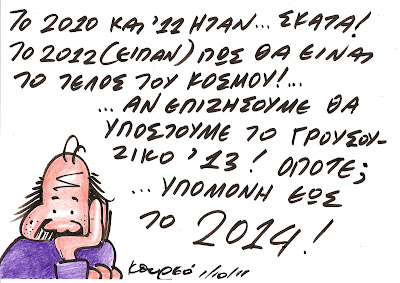 ΤΟ 2010 ΚΑΙ '11 ΗΤΑΝ... ΣΚΑΤΑ!
ΤΟ 2012 (ΕΙΠΑΝ) ΠΩΣ ΘΑ ΕΙΝΑΙ
ΤΟ ΤΕΛΟΣ ΤΟΥ ΚΟΣΜΟΥ!...
...ΑΝ ΕΠΙΖΗΣΟΥΜΕ ΘΑ
ΥΠΟΣΤΟΥΜΕ ΤΟ ΓΡΟΥΣΟΥ-
ΖΙΚΟ '13! ΟΠΟΤΕ;
...ΥΠΟΜΟΝΗ ΕΩΣ
ΤΟ 2014!
1/10/11